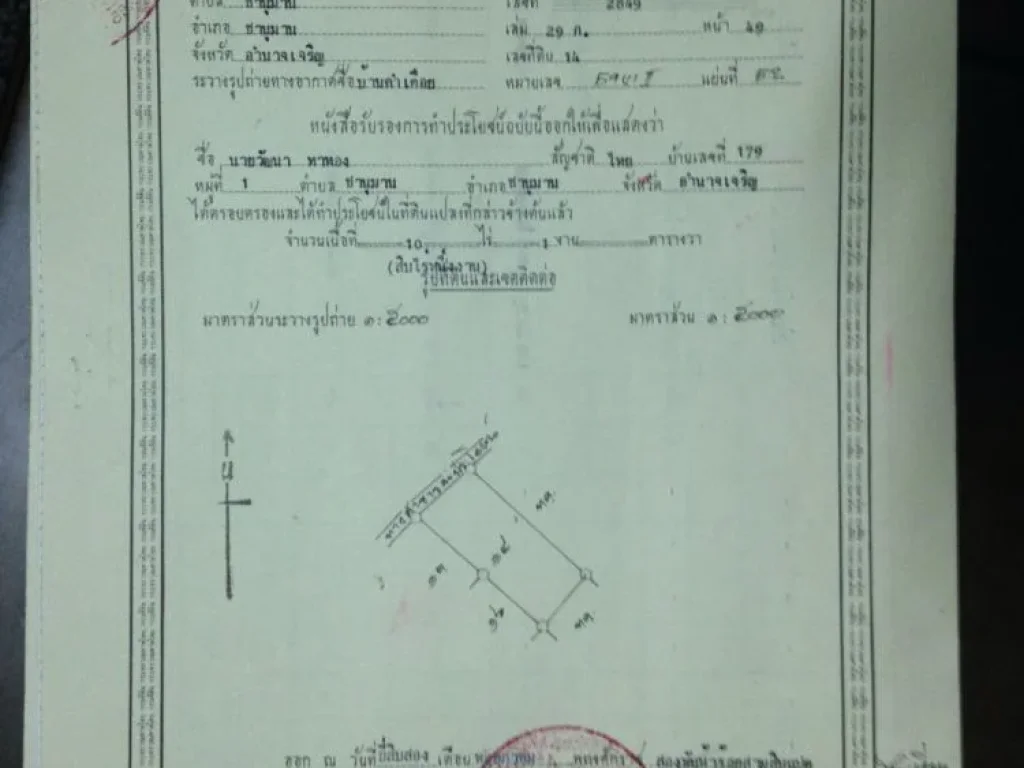 ตำบล ชานุมาน เลขที่ 2849
อำเภอ ชานุมาน เล่ม 29 ก. หน้า 49
จังหวัด อำนาจเจริญ เลขที่ดิน 14
ระวางรูปถ่ายทางอากาศชื่อ บ้านคำเดือย หมายเลข แผ่นที่
หนังสือรับรองการทำประโยชน์ฉบับนี้ออกให้เพื่อแสดงว่า
ชื่อ นายวัฒนา ทาทอง สัญชาติ ไทย บ้านเลขที่ 179
หมู่ที่ 1 ตำบล ชานุมาน อำเภอ ชานุมาน จังหวัด อำนาจเจริญ
ได้ครอบครองและได้ทำประโยชน์ในที่ดินแปลงที่กล่าวข้างต้นแล้ว
จำนวนเนื้อที่ 10 ไร่ 1 งาน ตารางวา
(สิบไร่หนึ่งงาน)
รูปที่ดินและเขตติดต่อ
มาตราส่วนระวางรูปถ่าย ๑ : ๕๐๐๐ มาตราส่วน ๑ : ๕๐๐๐
น
ทางสาธารณะประโยชน์
ทค.
๑๔
๑๓
๑๖
ทค.
ออก ณ วันที่ ยี่สิบสอง เดือน พฤษภาคม